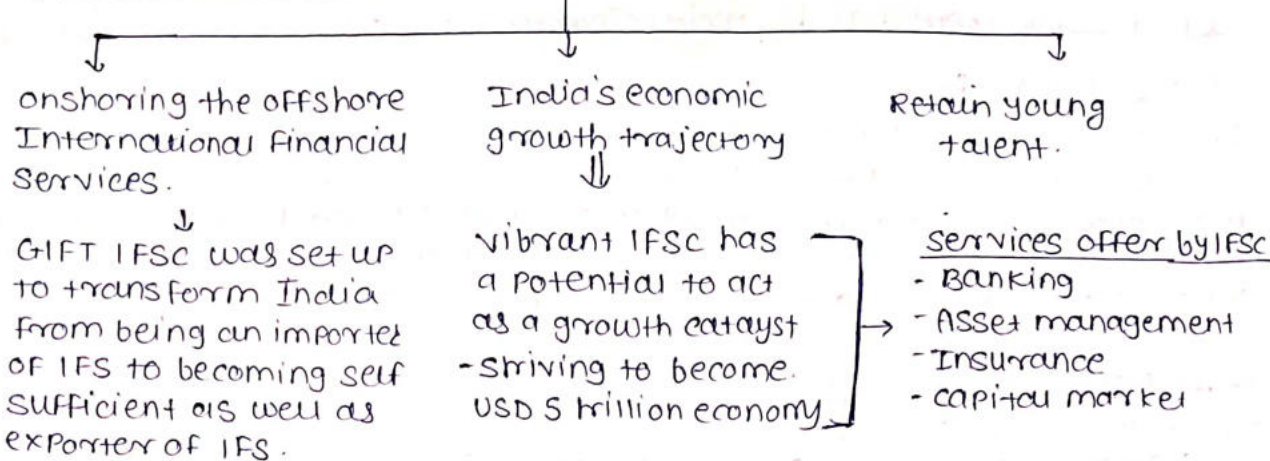 onshoring the offshore
International Financial
Services.
GIFT IFSC was set up
to transform India
from being an importer
of IFS to becoming self
sufficient as well as
exporter of IFS.
India's economic
growth trajectory
vibrant IFSC has
a potential to act
as a growth catayst
- striving to become.
USD 5 trillion economy
Retain young
talent.
services offer by IFSC
- Banking
- Asset management
- Insurance
- capital market